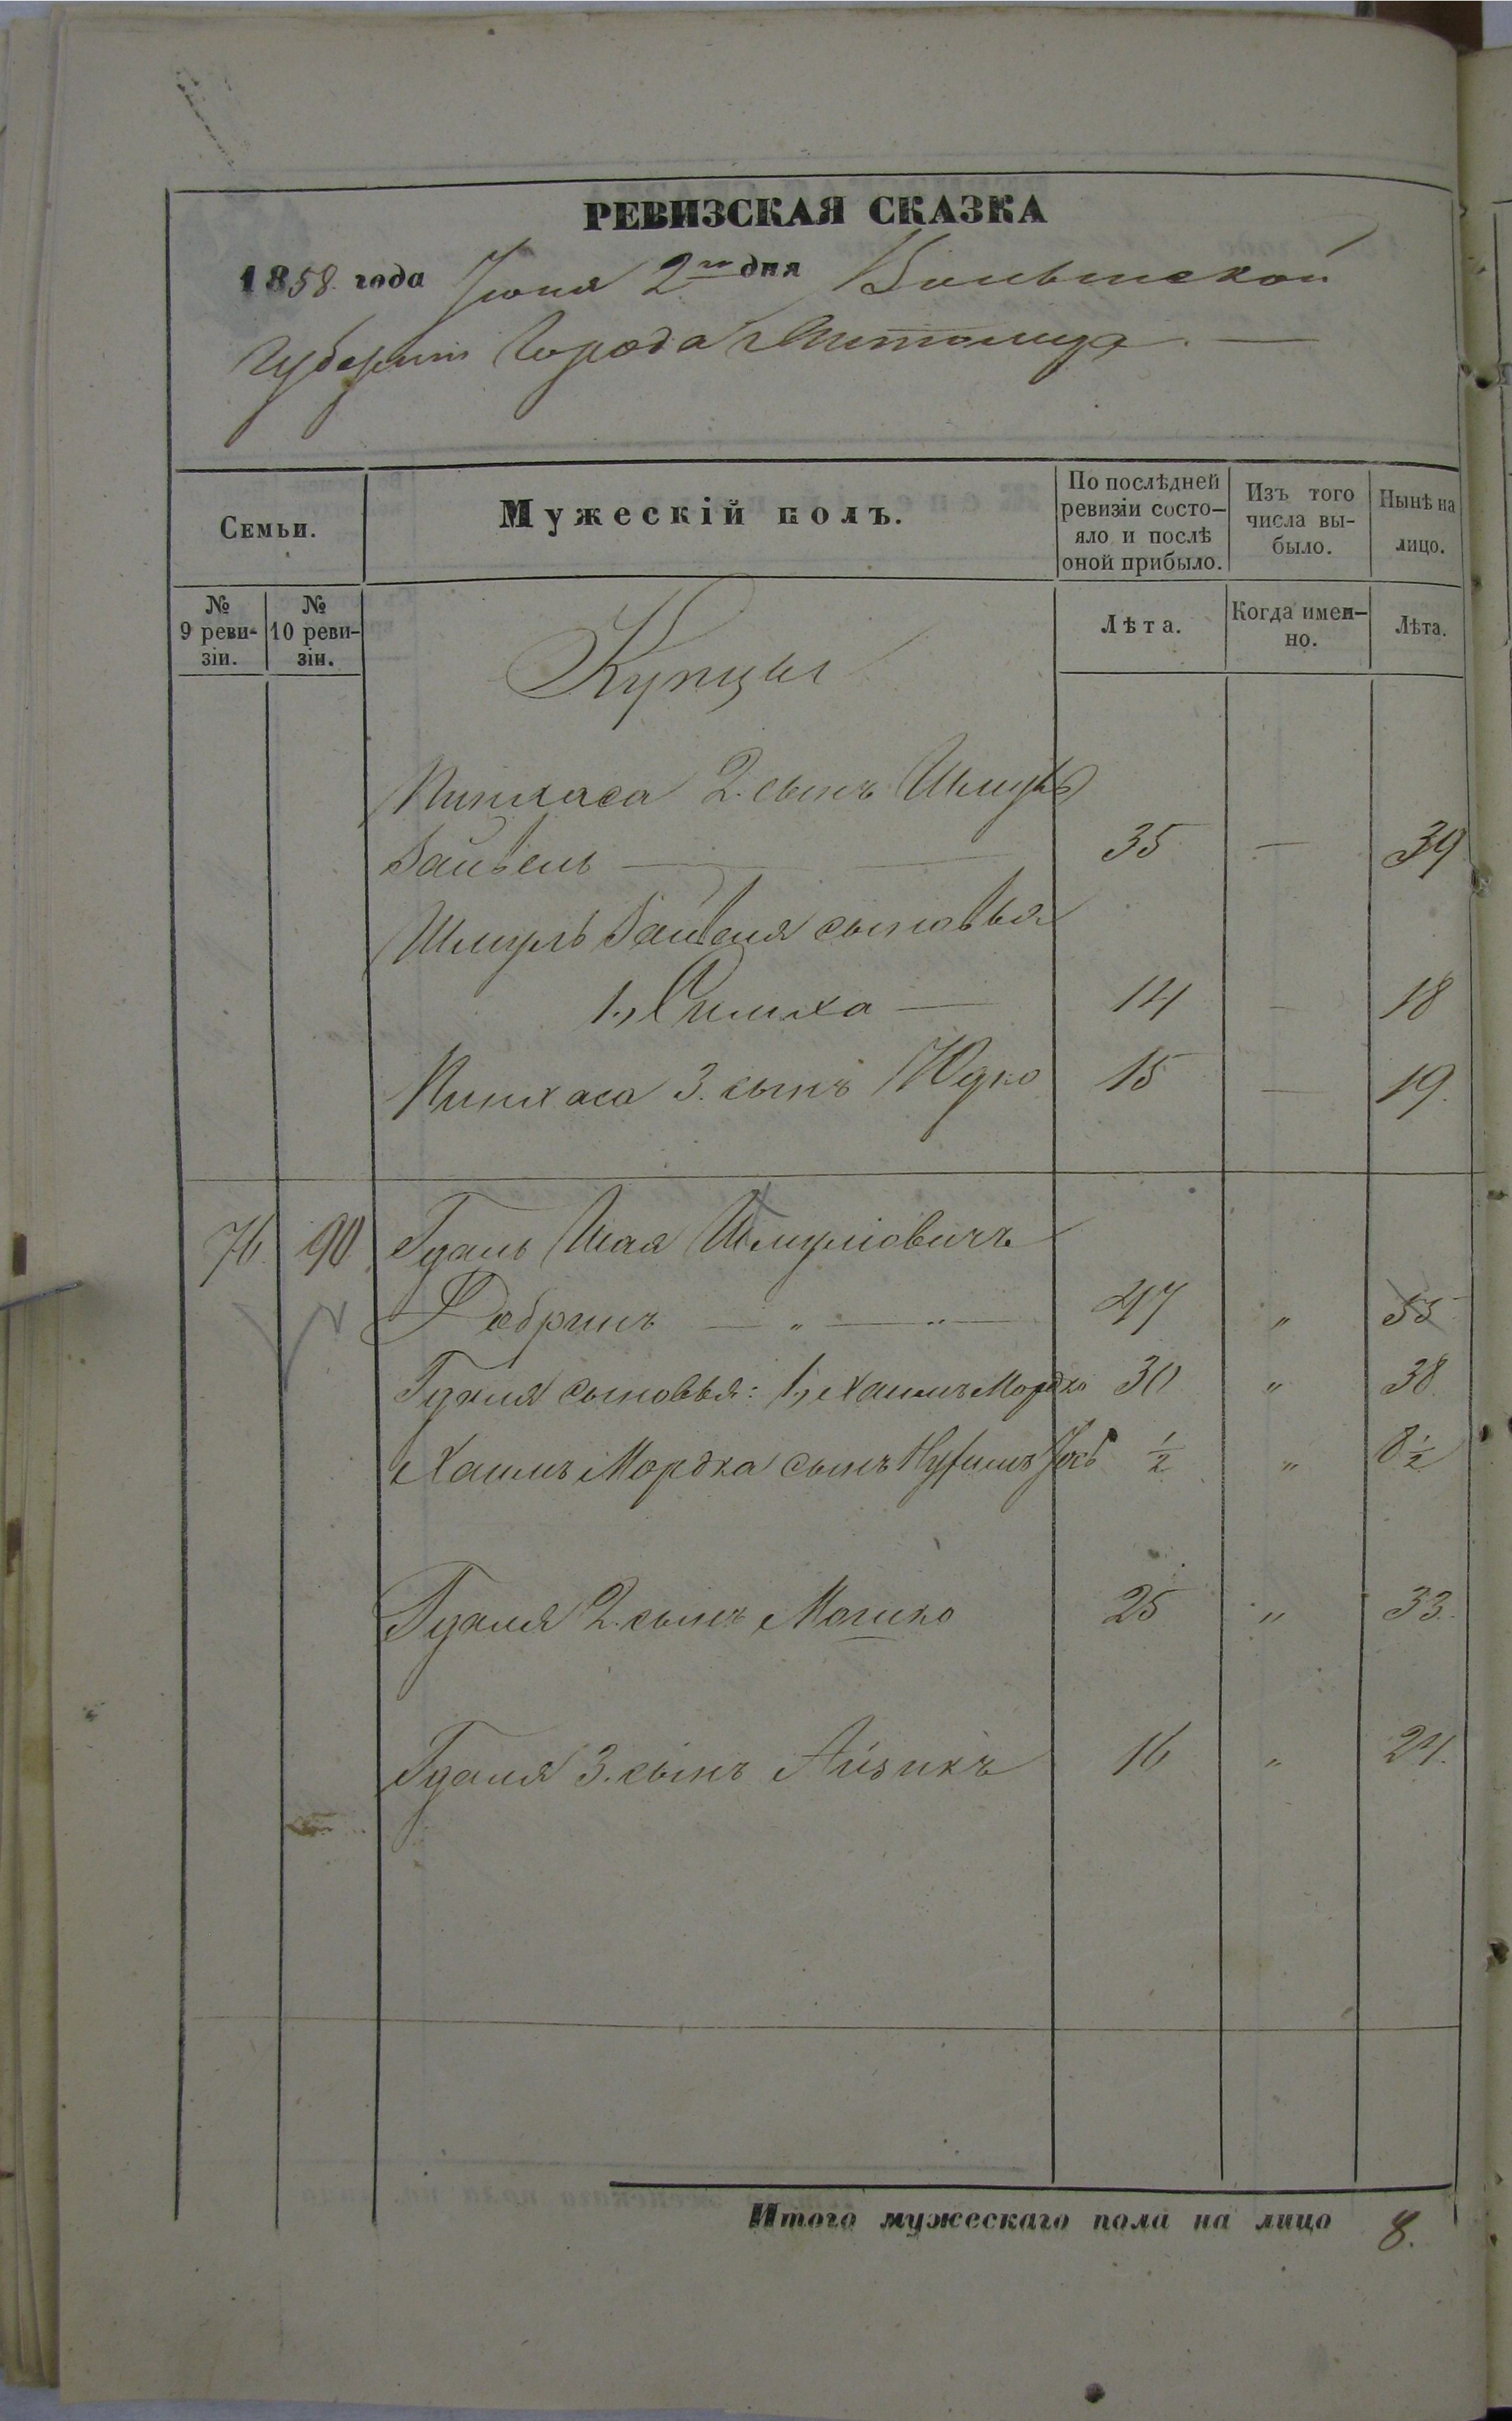 РЕВИЗСКАЯ СКАЗКА
1858 года Іюня 2го дня Волынской
Губерніи Города Житомира
Семьи.
Мужескій полъ.
По послѣдней ревизіи состо-яло и послѣ оной прибыло.
Изъ того числа вы-было.
Нынѣ на лицо.
№ 9 реви-зіи.
№ 10 реви-зіи.
Лѣта.
Когда имен-но.
Лѣта.
Купцы
Пинхаса 2. сынъ Шмуль
Зайвель — 35 — 39
Шмуль Зайвеля сыновья
1., Симха — 14 — 18
Пинхаса 3. сынъ Юдко 15 — 19.
76 90 Гдаль Шая Шмулiовичъ
Фабринъ — „ — „ — 47 „ 55
Гдаля сыновья: 1, Хаимъ Мордко 30 „ 38
Хаимъ Мордка сынъ 1/2 „ 8 1/2
Гдаля 2. сынъ Мошко 25 „ 33.
Гдаля 3. сынъ Айзикъ 16 „ 24.
Итого мужескаго пола на лицо 8.